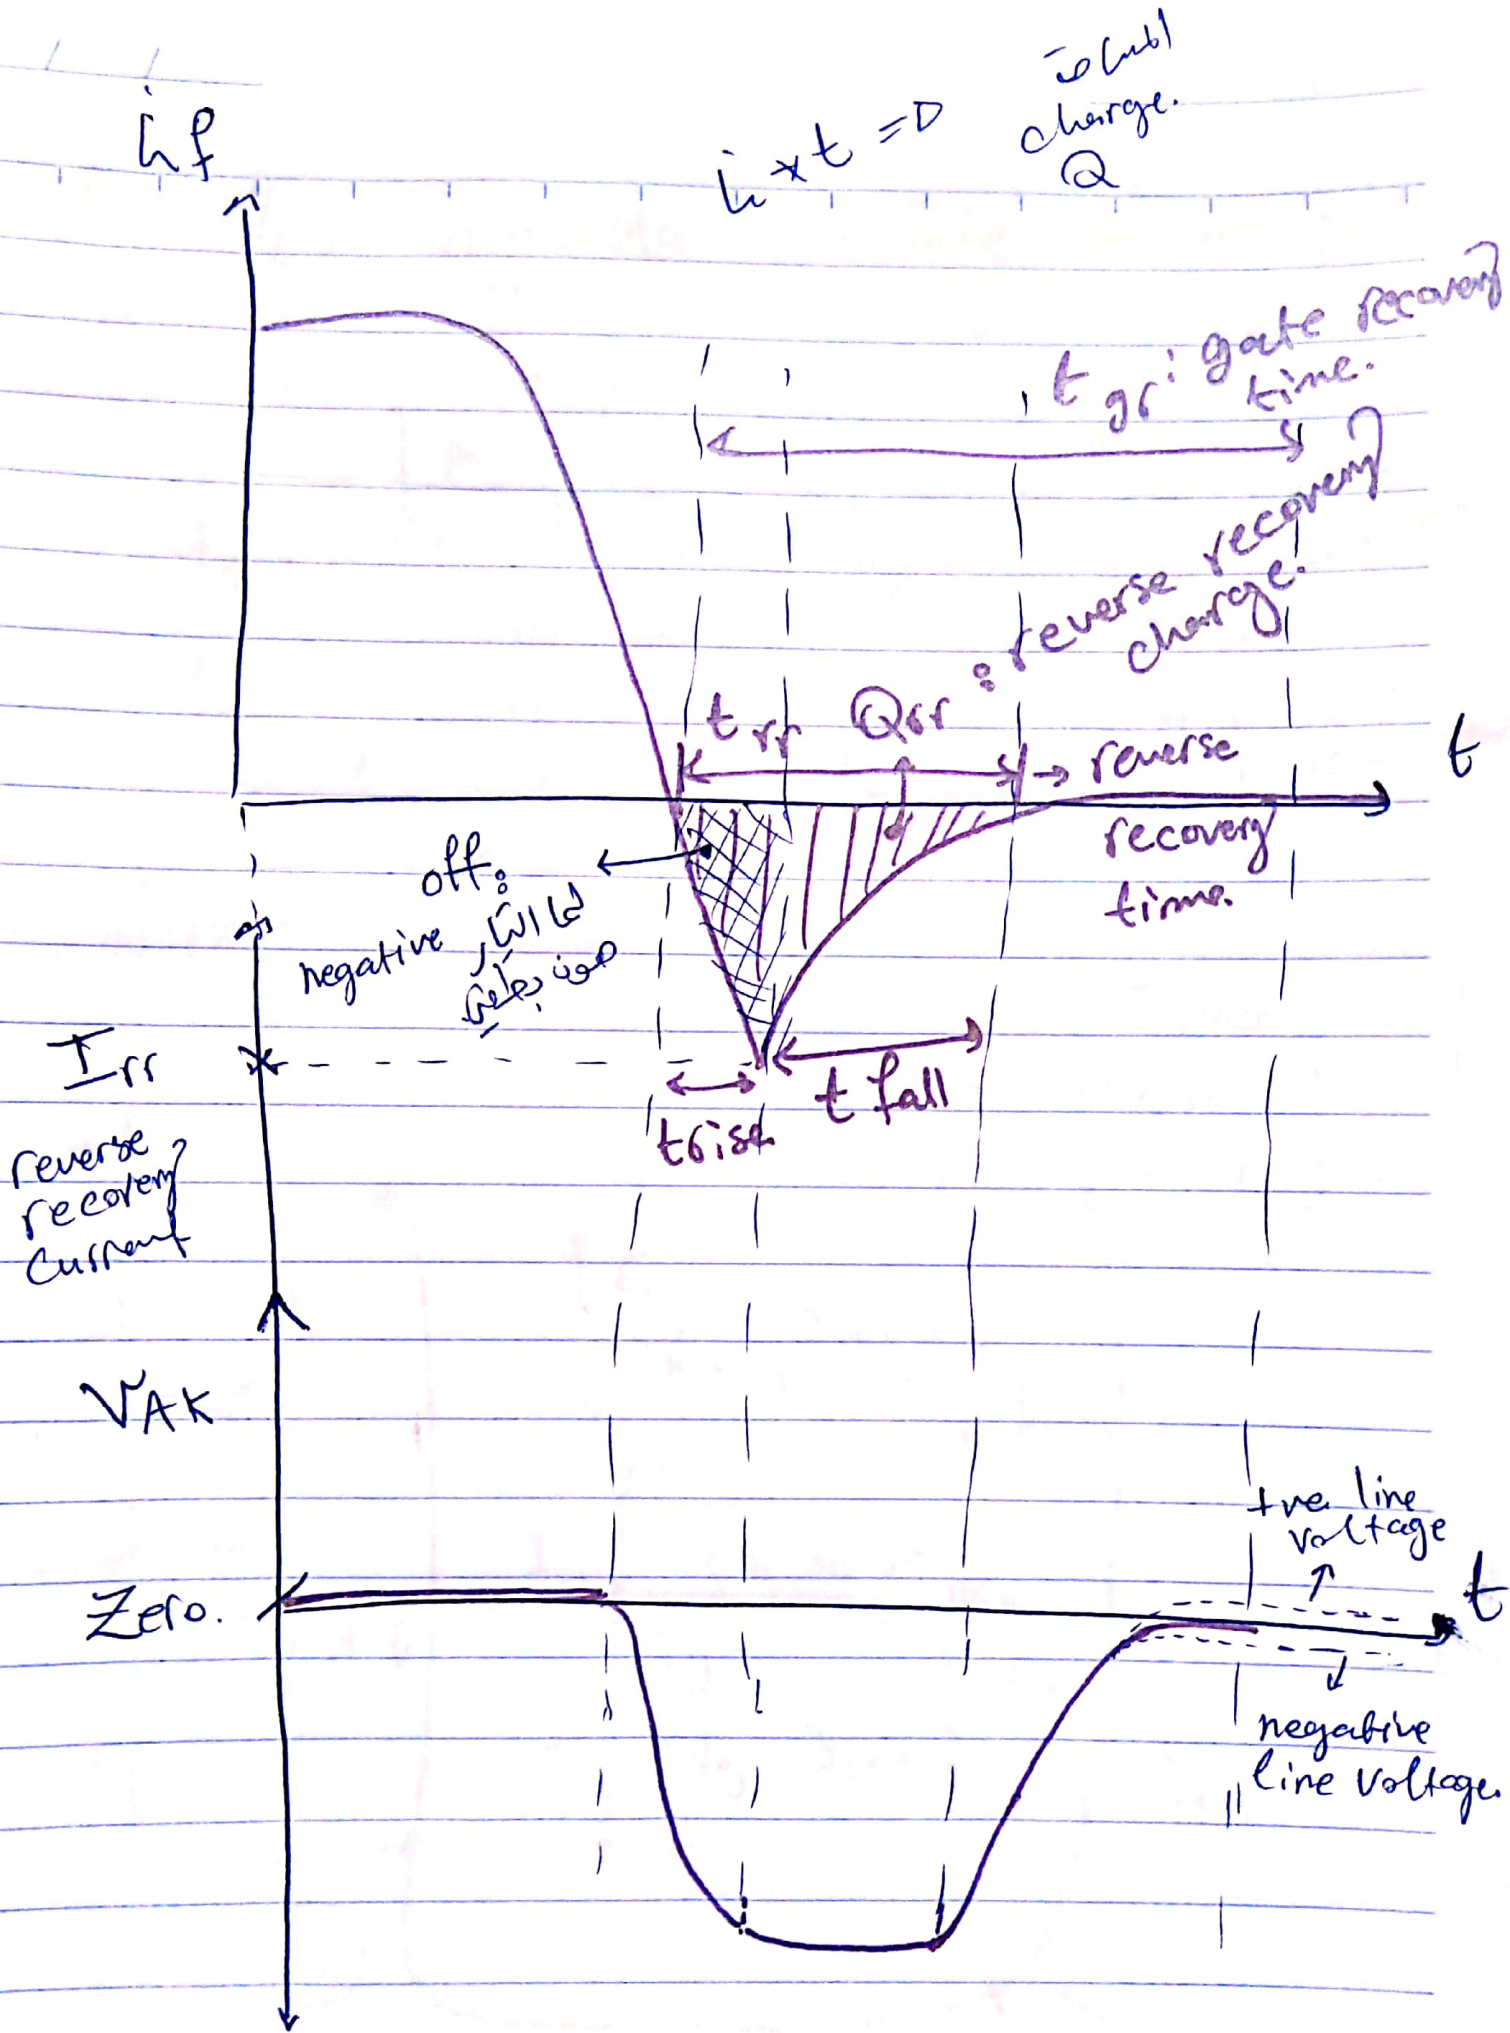 if
i * t =>
charge.
Q
tgr : gate recovery
time.
trr
Qrr : reverse recovery
charge.
→ reverse
recovery
time.
t
off:
negative لما التيار
Irr
reverse
recovery
current
trise
t fall
VAK
Zero.
+ve line
voltage
t
negative
line voltage.